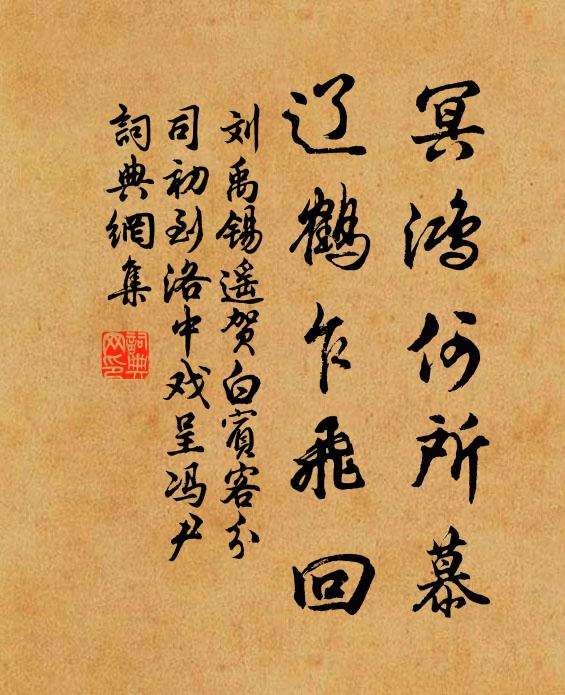 冥鸿何所慕
辽鹤乍飞回
刘禹锡遥贺白宾客分
司初到洛中戏呈冯尹
词典网集
词典网印